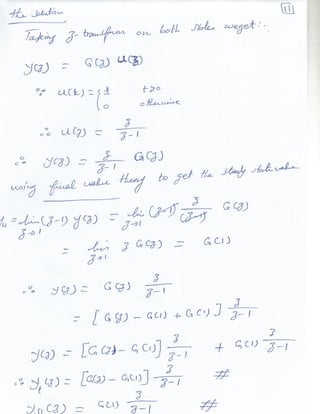 the solution
11
Taking z-transform on both sides we get:-
y(z) = G(z) u(z)
∵ u(k) = { 1 t≥0
0 otherwise
∴ u(z) = z/(z-1)
∴ y(z) = z/(z-1) G(z)
using final value theory to get the steady state value
y₀ = lim(z-1) y(z) = lim (z-1) z/(z-1) G(z)
z→1 z→1
= lim z G(z) = G(1)
z→1
∴ y(z) = G(z) z/(z-1)
= [G(z) - G(1) + G(1)] z/(z-1)
y(z) = [G(z) - G(1)] z/(z-1) + G(1) z/(z-1)
∴ y (z) = [G(z) - G(1)] z/(z-1) #
(z) = G(1) z/(z-1) #